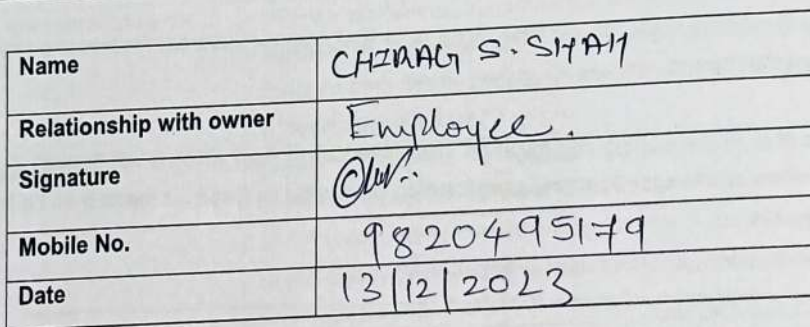 Name CHIRAG S. SHAH
Relationship with owner Employee.
Signature
Mobile No. 9820495179
Date 13/12/2023